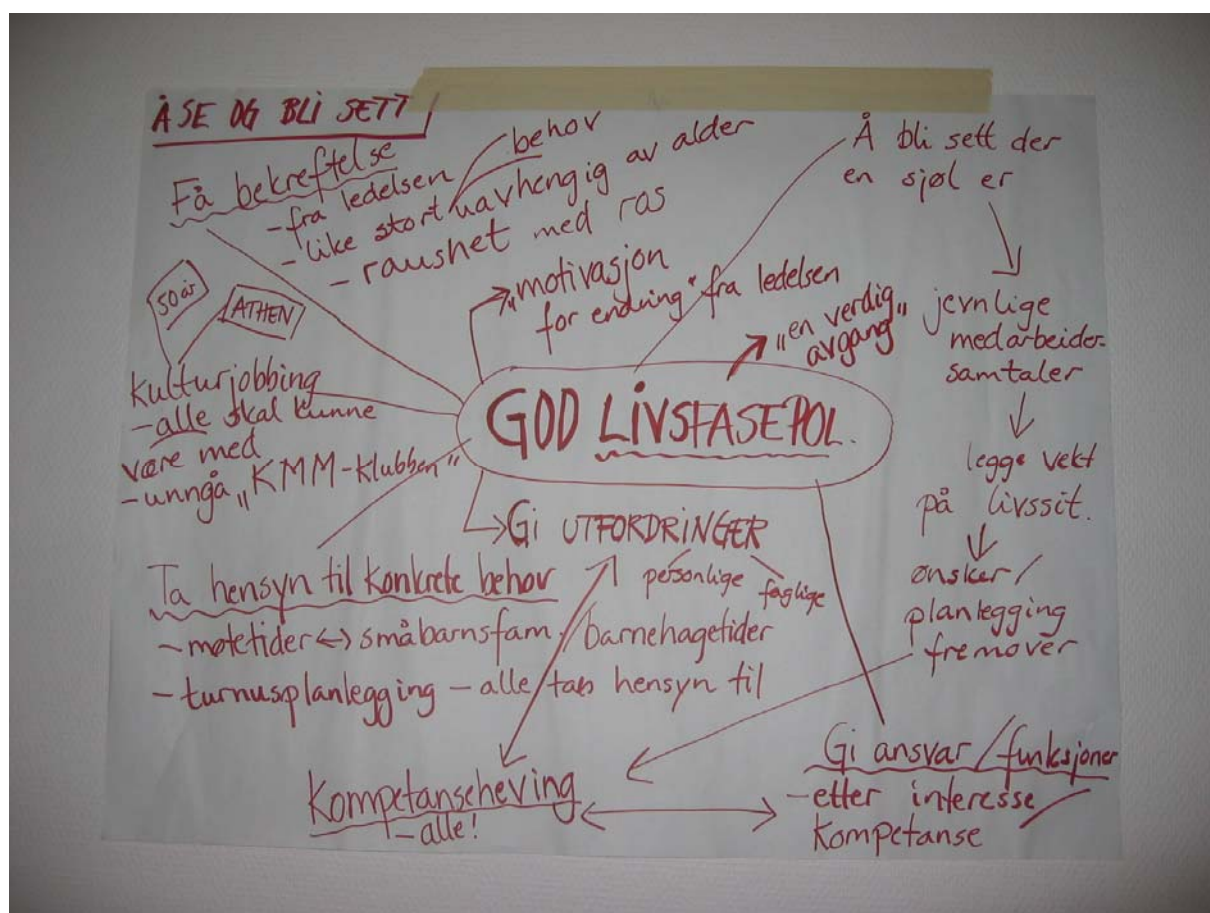 Å SE OG BLI SETT
Få bekreftelse
- fra ledelsen
behov
- like stort uavhengig av alder
- raushet med ros
50 år
ATHEN
Kulturjobbing
- alle skal kunne
være med
- unngå „KMM-Klubben"
„motivasjon
for endring" fra ledelsen
„en verdig"
avgang
Å bli sett der
en sjøl er
jevnlige
medarbeider-
samtaler
legge vekt
på livssit.
ønsker/
planlegging
fremover
GOD LIVSFASEPOL.
Gi UTFORDRINGER
personlige
faglige
Ta hensyn til konkrete behov
- møtetider <-> småbarnsfam./barnehagetider
- turnusplanlegging - alle tas hensyn til
Kompetanseheving
- alle!
Gi ansvar/funksjoner
- etter interesse/
kompetanse